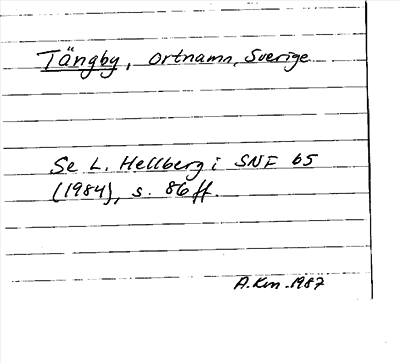 Tängby, ortnamn, Sverige
Se L. Hellberg i SNF 65
(1984), s. 86 ff.
A.Km. 1987